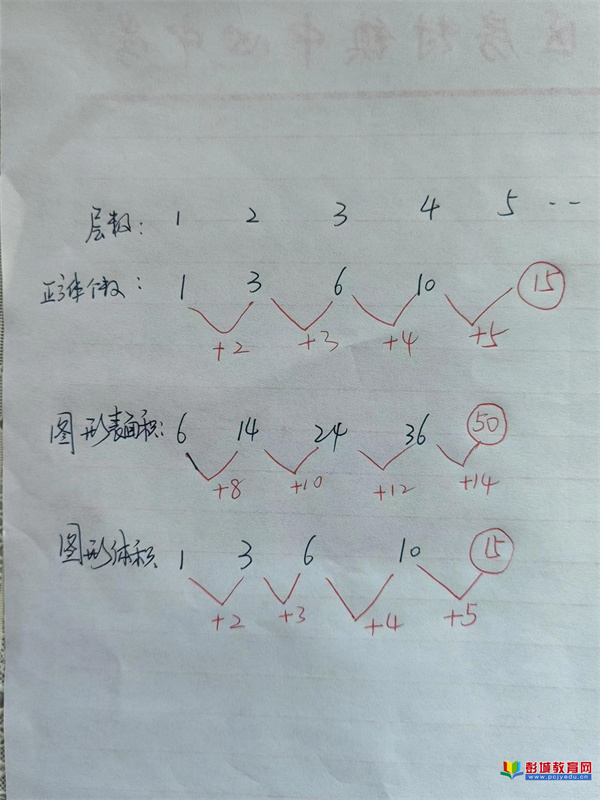 区房村镇中心中学
层数: 1 2 3 4 5 …
正方体个数: 1 3 6 10 15
+2 +3 +4 +5
图形表面积: 6 14 24 36 50
+8 +10 +12 +14
图形体积 1 3 6 10 15
+2 +3 +4 +5
彭城教育网
www.pcjyedu.cn